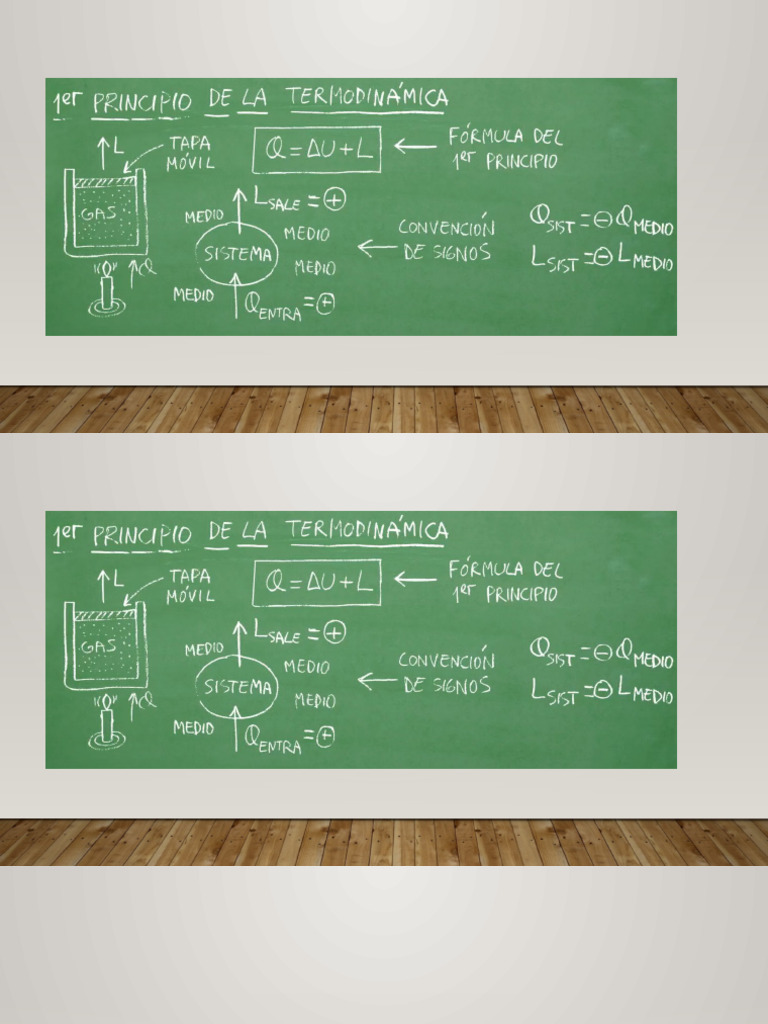 1er PRINCIPIO DE LA TERMODINÁMICA
L
TAPA
MÓVIL
Q = ΔU + L
FÓRMULA DEL
1er PRINCIPIO
GAS
Q
MEDIO
L SALE = ⊕
MEDIO
SISTEMA
MEDIO
MEDIO
Q ENTRA = ⊕
CONVENCIÓN
DE SIGNOS
Q SIST = ⊖ Q MEDIO
L SIST = ⊖ L MEDIO
1er PRINCIPIO DE LA TERMODINÁMICA
L
TAPA
MÓVIL
Q = ΔU + L
FÓRMULA DEL
1er PRINCIPIO
GAS
Q
MEDIO
L SALE = ⊕
MEDIO
SISTEMA
MEDIO
MEDIO
Q ENTRA = ⊕
CONVENCIÓN
DE SIGNOS
Q SIST = ⊖ Q MEDIO
L SIST = ⊖ L MEDIO